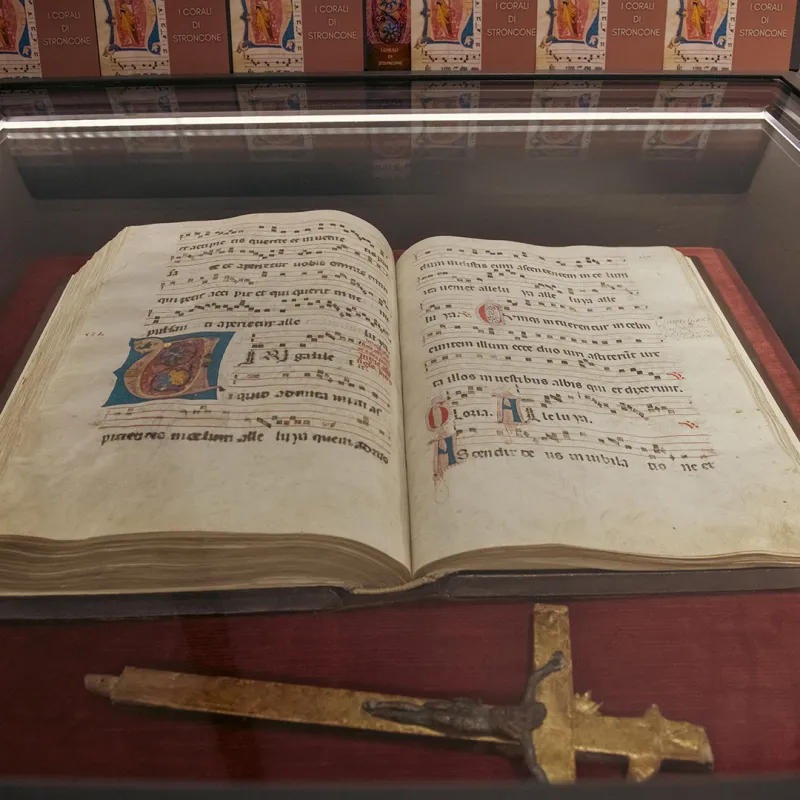 I CORALI
DI
STRONCONE
I CORALI
DI
STRONCONE
I CORALI
DI
STRONCONE
I CORALI
DI
STRONCONE
I CORALI
DI
STRONCONE
I CORALI
DI
STRONCONE
et accipie tis querite et inuenie
tis pul
et et aperietur uobis omnis enim
qui petit acci pit et qui querit in ue
pulsan ti aperietur alle
lu ya
galilei
quid admira mi ni as
picientes in celum alle lu ya quem admo
dum uidistis eum ascendentem in ce lum
ita ueniet allelu ya alle luya alle
lu ya. Cumque intuerentur in celum
euntem illum ecce duo uiri astiterunt iux
ta illos in uestibus albis qui et dixerunt.
Gloria. Alleluya.
Ascendit de us in iubila tio ne et